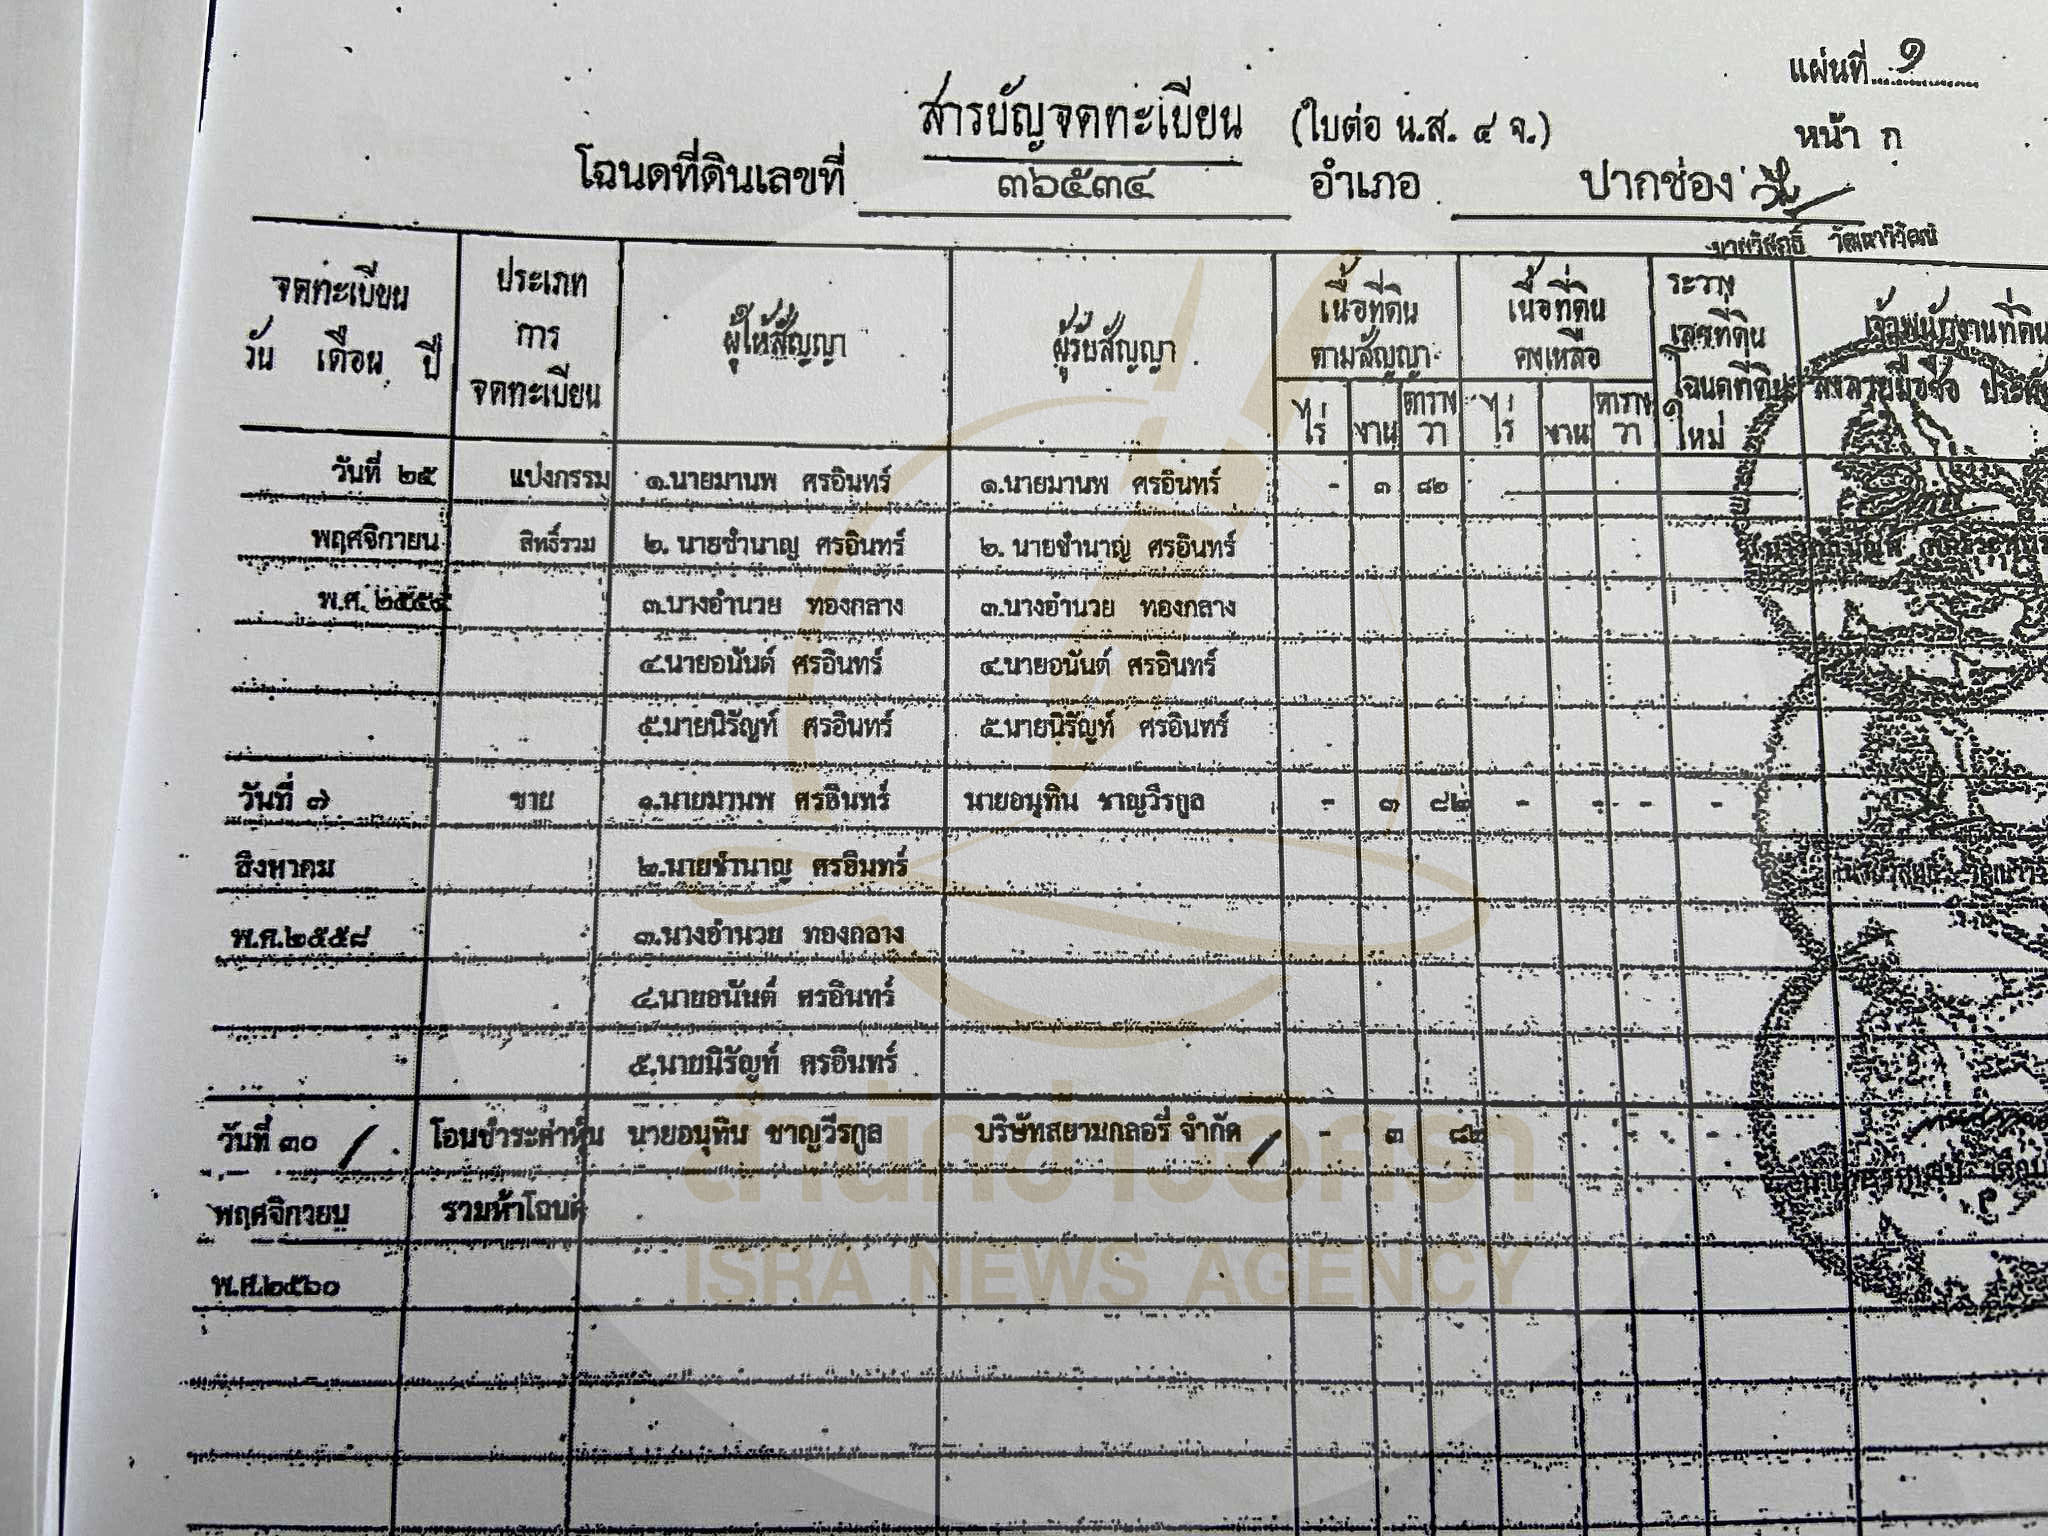 แผ่นที่ ๑
สารบัญจดทะเบียน (ใบต่อ น.ส. ๔ จ.) หน้า ก
โฉนดที่ดินเลขที่ ๓๖๕๓๔ อำเภอ ปากช่อง
จดทะเบียน วัน เดือน ปี
ประเภท การ จดทะเบียน
ผู้ให้สัญญา
ผู้รับสัญญา
เนื้อที่ดิน ตามสัญญา
ไร่ งาน ตาราง วา
เนื้อที่ดิน คงเหลือ
ไร่ งาน ตาราง วา
ระวาง เลขที่ดิน โฉนดที่ดิน ใหม่
เจ้าพนักงานที่ดิน
ลงลายมือชื่อ
วันที่ ๒๕ แบ่งกรรม ๑.นายมานพ ศรอินทร์ ๑.นายมานพ ศรอินทร์ - ๓ ๘๒
พฤศจิกายน สิทธิ์รวม ๒. นายชำนาญ ศรอินทร์ ๒. นายชำนาญ ศรอินทร์
พ.ศ. ๓.นางอำนวย ทองกลาง ๓.นางอำนวย ทองกลาง
๔.นายอนันต์ ศรอินทร์ ๔.นายอนันต์ ศรอินทร์
๕.นายนิรัญท์ ศรอินทร์ ๕.นายนิรัญท์ ศรอินทร์
วันที่ ๗ ขาย ๑.นายมานพ ศรอินทร์ นายอนุทิน ชาญวีรกูล - ๓ ๘๒ - - - -
สิงหาคม ๒.นายชำนาญ ศรอินทร์
พ.ศ.๒๕๕๘ ๓.นางอำนวย ทองกลาง
๔.นายอนันต์ ศรอินทร์
๕.นายนิรัญท์ ศรอินทร์
วันที่ ๓๐ โอนชำระค่าหุ้น นายอนุทิน ชาญวีรกูล บริษัทสยามกลอรี่ จำกัด - ๓ ๘๒ - - - -
พฤศจิกายน รวมห้าโฉนด
พ.ศ.๒๕๖๐
สำนักข่าวอิศรา
ISRA NEWS AGENCY